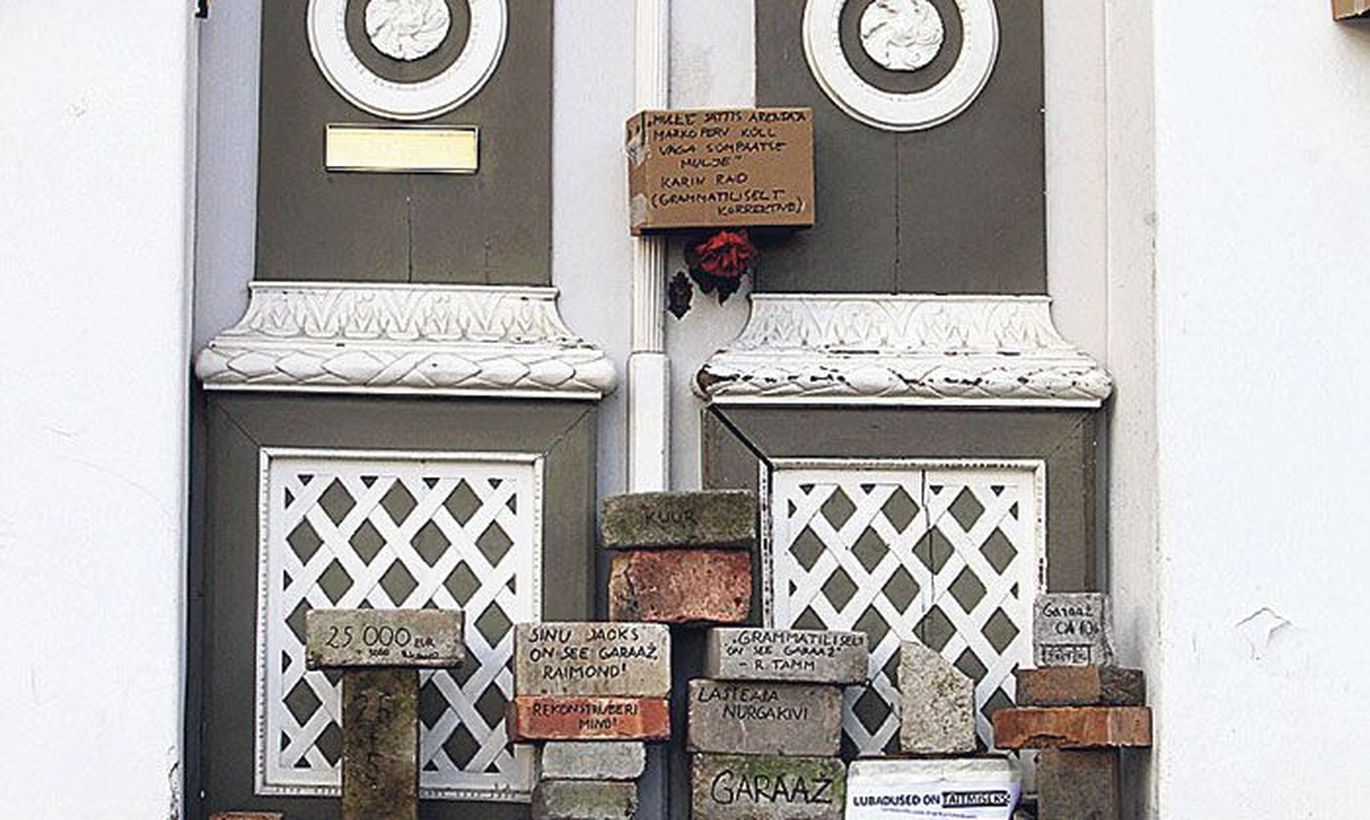 "MULLE JÄTTIS ARENDAJA
MARKO PERV KÜLL
VÄGA SÜMPAATSE
MULJE"
KARIN RAID
(GRAMMATILISELT
KORREKTNE)
KUUR
25 000 EUR
SINU JAOKS
ON SEE GARAAŽ,
RAIMOND!
REKONSTRUEERI
MIND!
"GRAMMATILISELT
ON SEE GARAAŽ"
- R. TAMM
LASTEAIA
NURGAKIVI
GARAAŽ
Garaaž
CA
LUBADUSED ON TÄITMISEKS